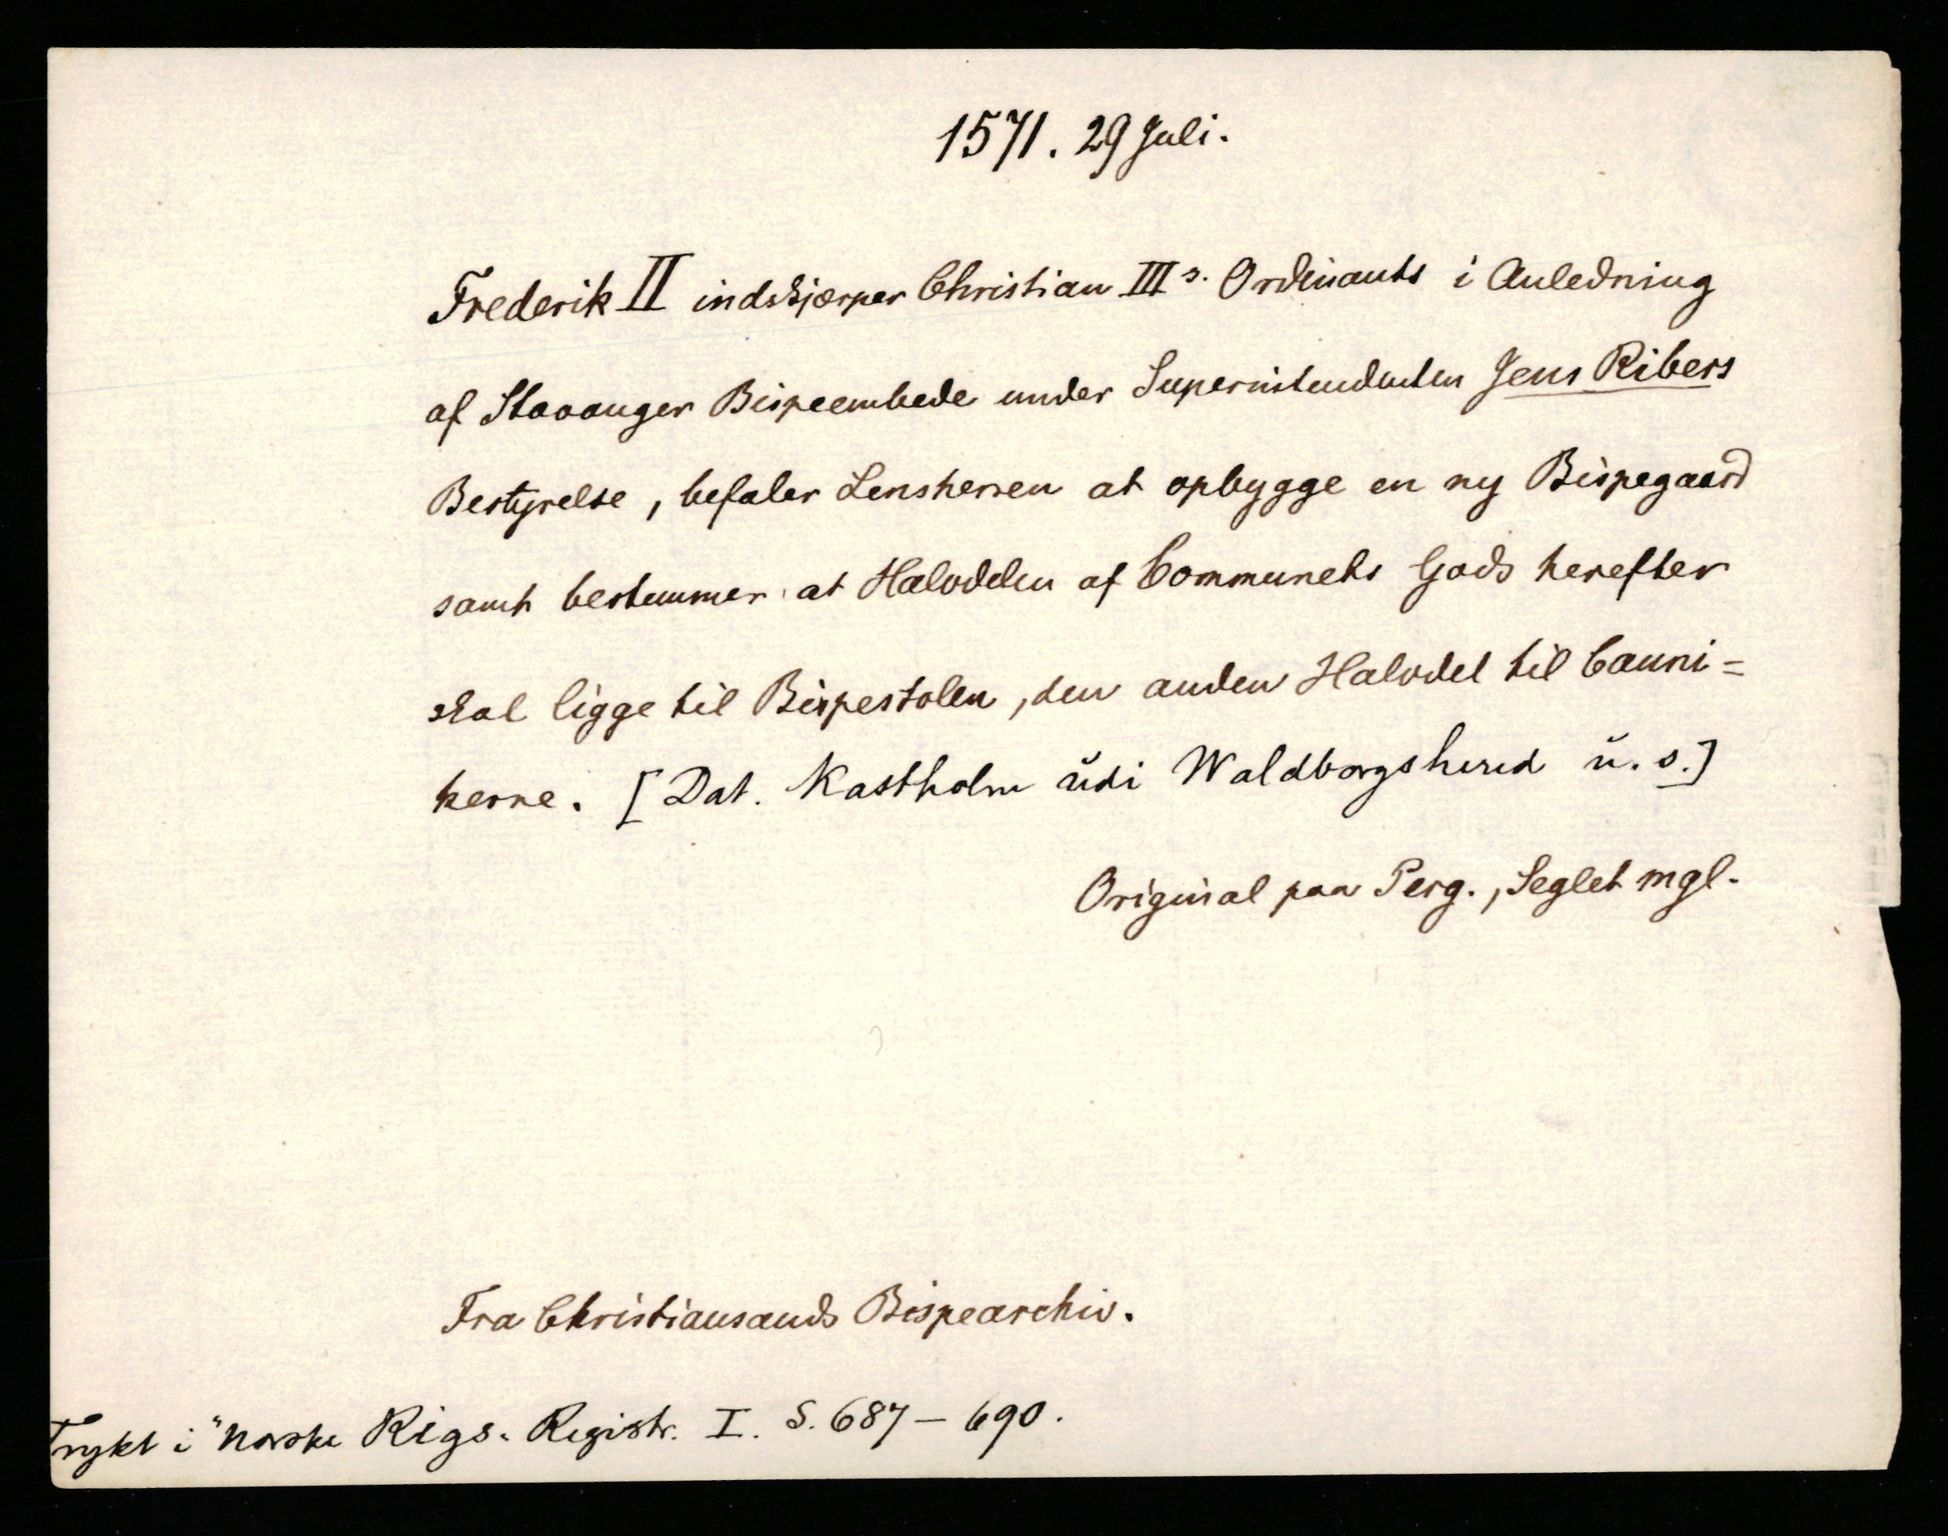 1571. 29 Juli.
Frederik II indskjærper Christian IIIs. Ordinants i Anledning
af Stavanger Bispeembede under Superintendenten Jens Ribers
Bestyrelse, befaler Lensherren at opbygge en ny Bispegaard
samt bestemmer at Halvdelen af Communets Gods herefter
skal ligge til Bispestolen, den anden Halvdel til Canni=
kerne. [Dat. Kastholm ŭdi Waldborgsherred ŭ. s.]
Original paa Perg., Seglet mgl.
Fra Christiansands Bispearchiv.
Trykt i "Norske Rigs. Registr. I. S. 687 - 690.